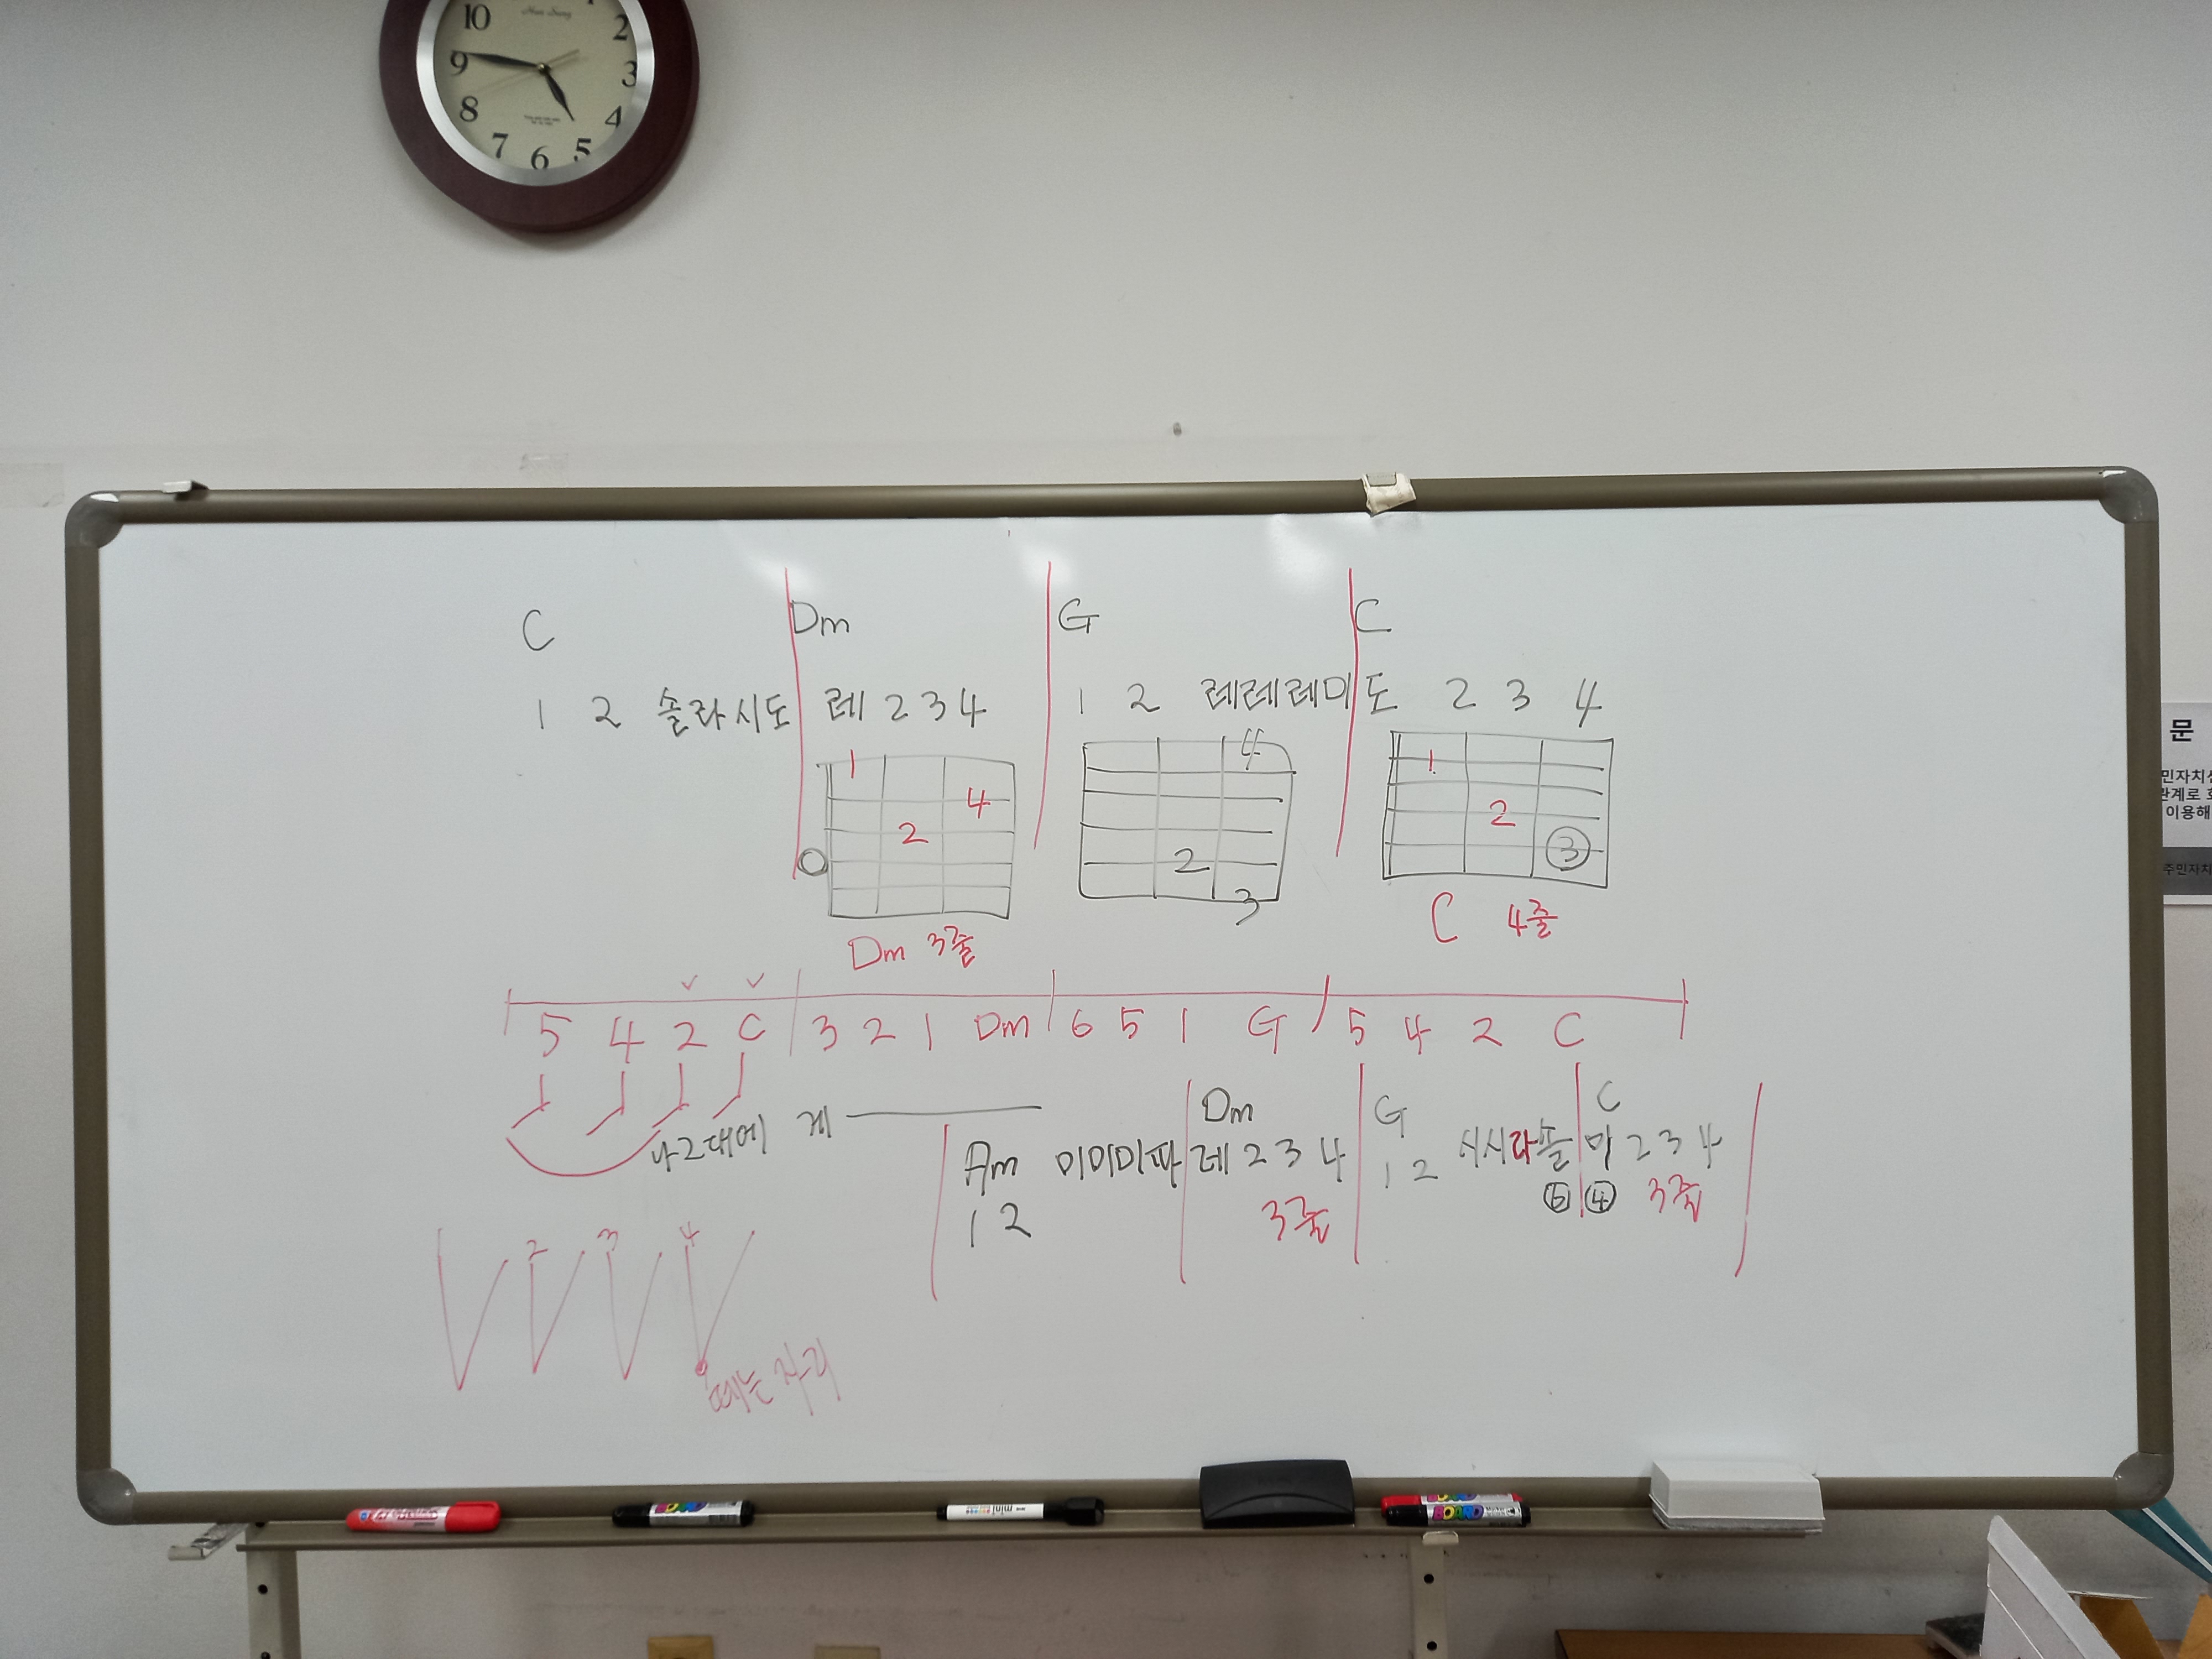 10 2 9 3 8 4 7 6 5
C Dm G C
1 2 솔라시도 레 2 3 4 1 2 레레레미 도 2 3 4
1 4 2
4 2 3
1 2 ③
Dm 3줄
C 4줄
5 4 2 C 3 2 1 Dm 6 5 1 G 5 4 2 C
나 그대에 게
Dm G C
Am 미미미파 레 2 3 4 1 2 시시라솔 미 2 3 4
1 2 3줄 ⑤ ④ 3줄
2 3 4
떼는 자리
문
민자치센
관계로
이용해
주민자치
BOARD
mini
BOARD